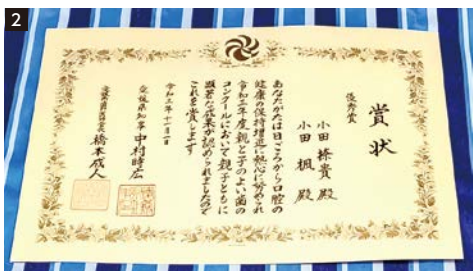 2
賞状
優秀賞
小田 榛貴 殿
小田 楓 殿
あなたがたは日ごろから口腔の
健康の保持増進に熱心に努められ
令和三年度親と子のよい歯の
コンクールにおいて親子ともに
顕著な成果が認められましたので
これを賞します
令和三年十一月一日
愛媛県知事 中村時広
愛媛県歯科医師会長 橋本成人